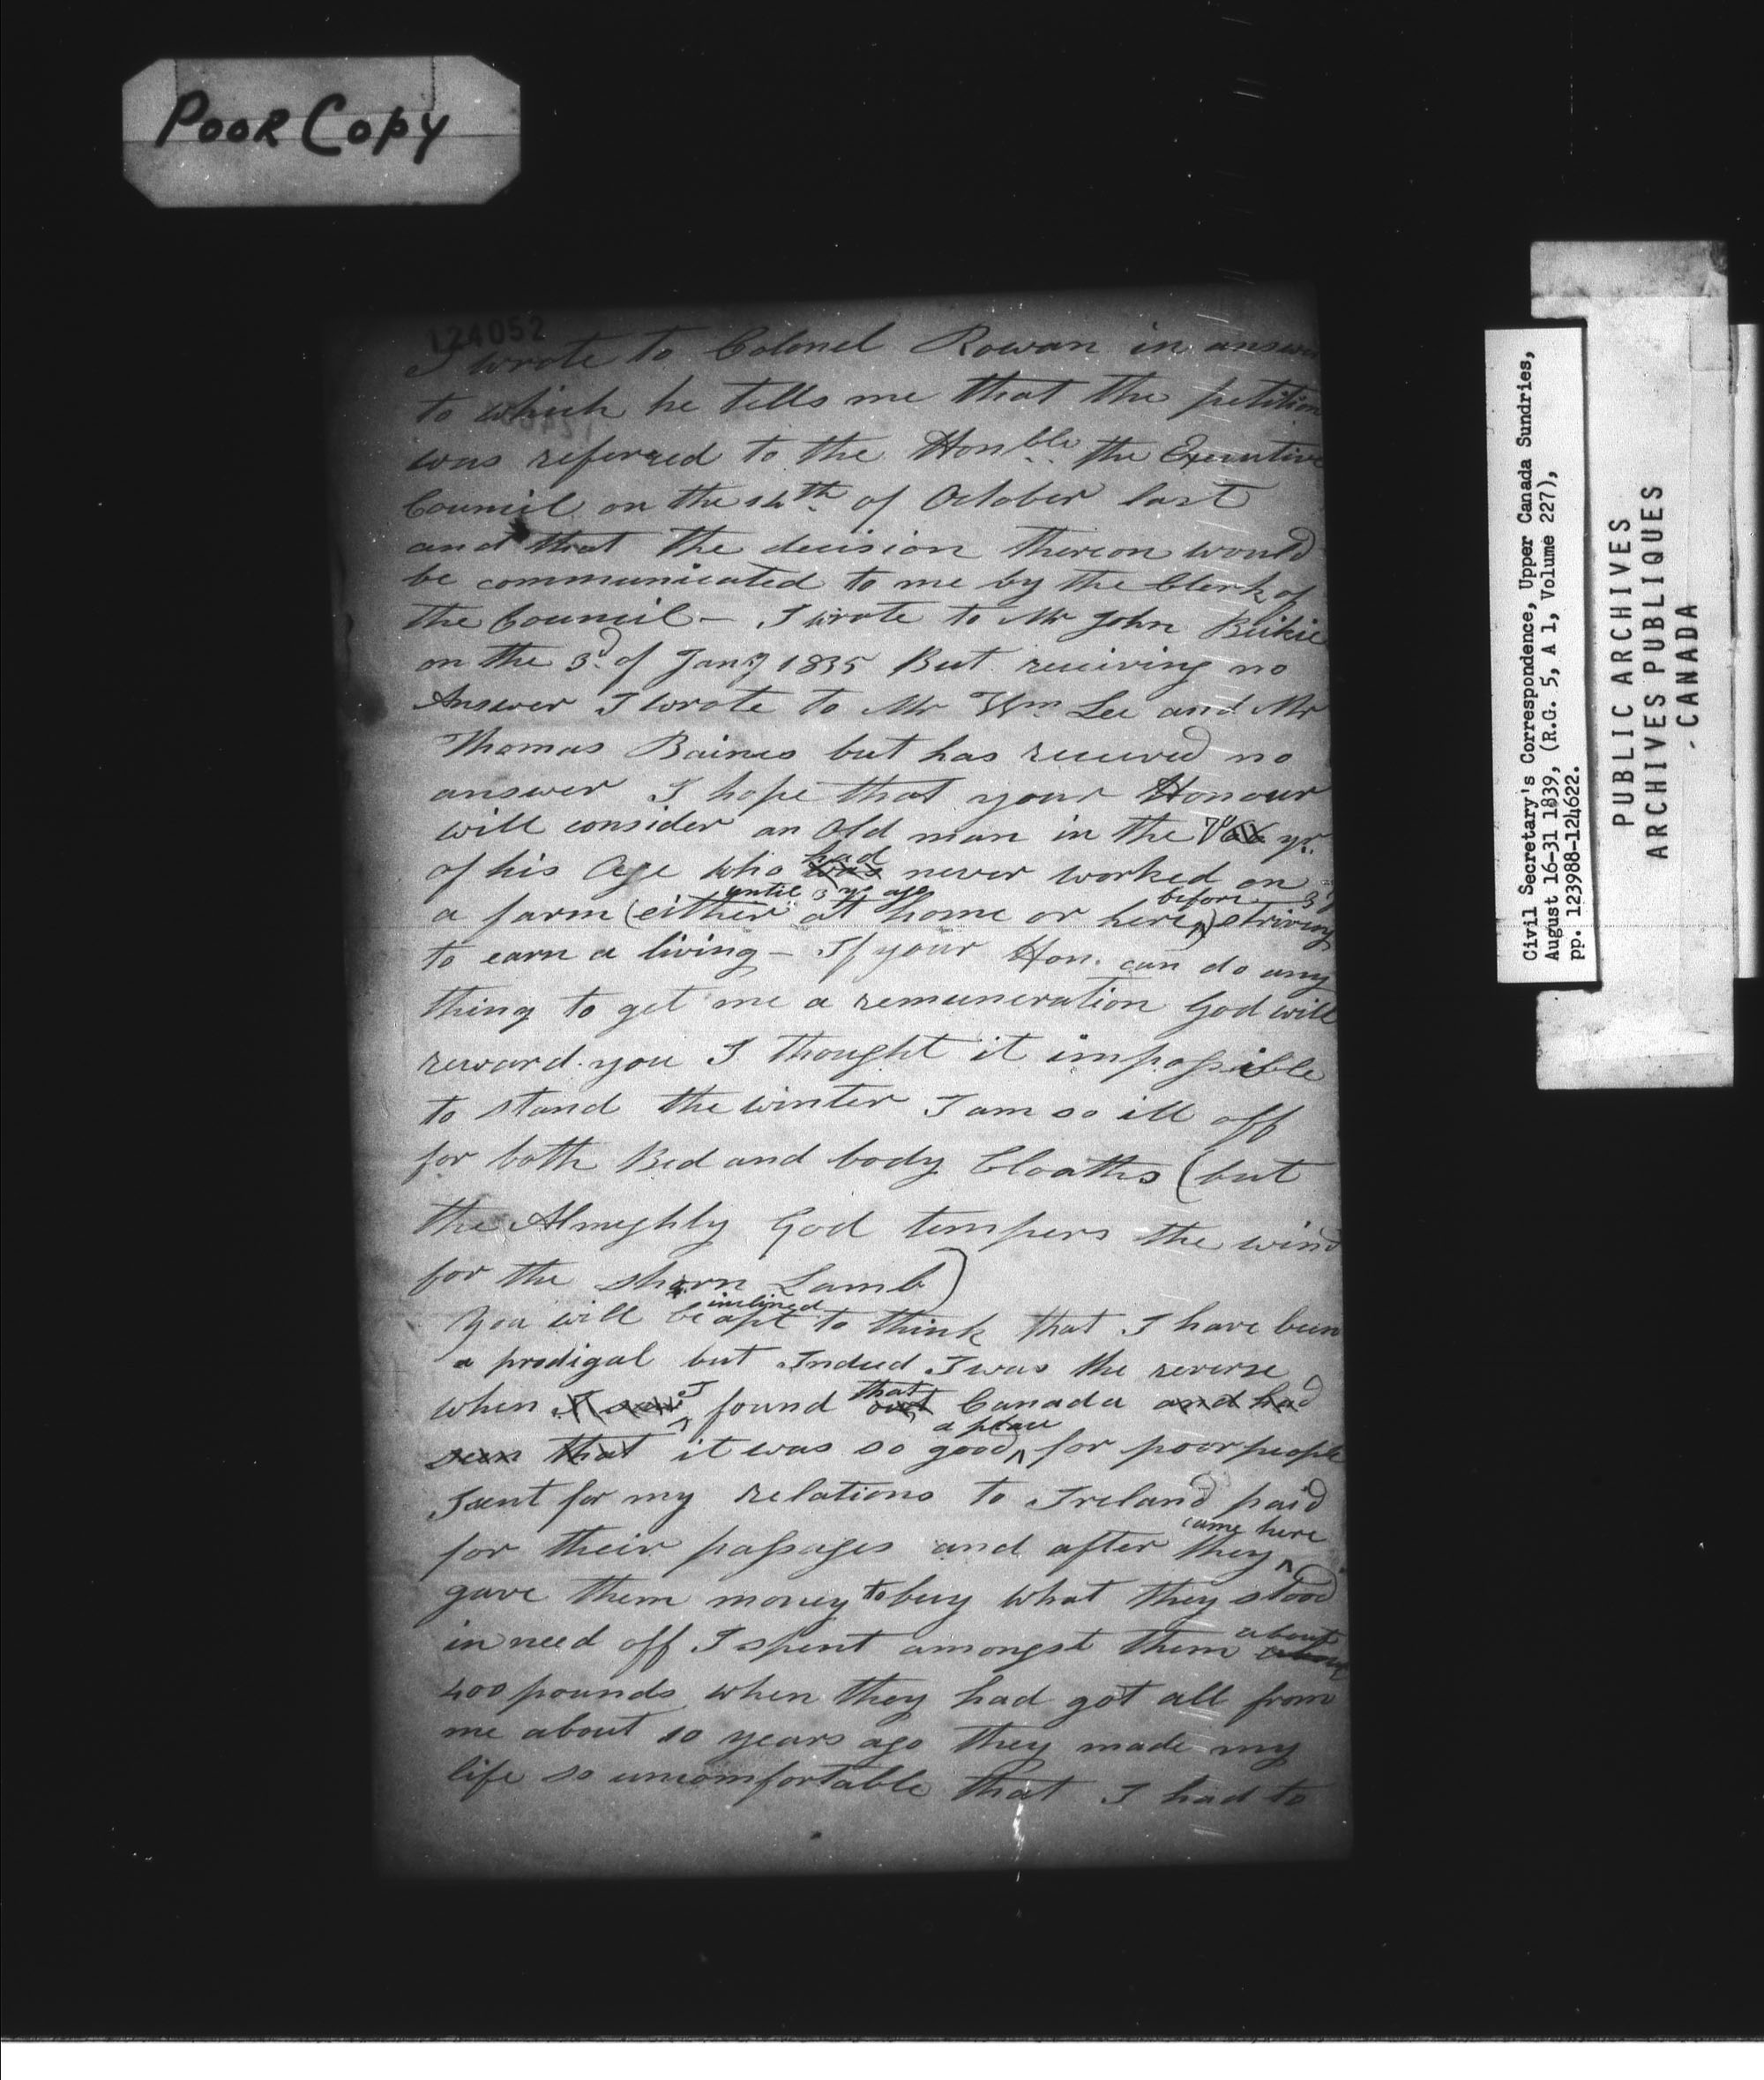 Poor Copy
124052
I wrote to Colonel Rowan in answer
to which he tells me that the petition
was referred to the Honble the Executive
Council on the 14th of October last
and that the decision thereon would
be communicated to me by the Clerk of
the Council - I wrote to Mr John Beikie
on the 3d of Jany 1835 But receiving no
Answer I wrote to Mr Wm Lee and Mr
Thomas Baines but has received no
answer I hope that your Honour
will consider an Old man in the yr.
had
of his Age who was never worked on
until 3 yr ago before
a farm (either at home or here) striving
to earn a living - If your Hon. can do any
thing to get me a remuneration God will
reward you I thought it impossible
to stand the winter I am so ill off
for both Bed and body Cloaths (but
the Almighty God tempers the wind
for the shorn Lamb)
inclined
You will be apt to think that I have been
a prodigal but Indeed I was the reverse
I that
when I found out Canada and had
a place
seen that it was so good for poor people
I sent for my relations to Ireland paid
came here
for their passages and after they
gave them money to buy what they stood
about
in need off I spent amongst them
400 pounds when they had got all from
me about 10 years ago they made my
life so uncomfortable that I had to
Civil Secretary's Correspondence, Upper Canada Sundries,
August 16-31 1839, (R.G. 5, A 1, Volume 227),
pp. 123988-124622.
PUBLIC ARCHIVES
ARCHIVES PUBLIQUES
CANADA